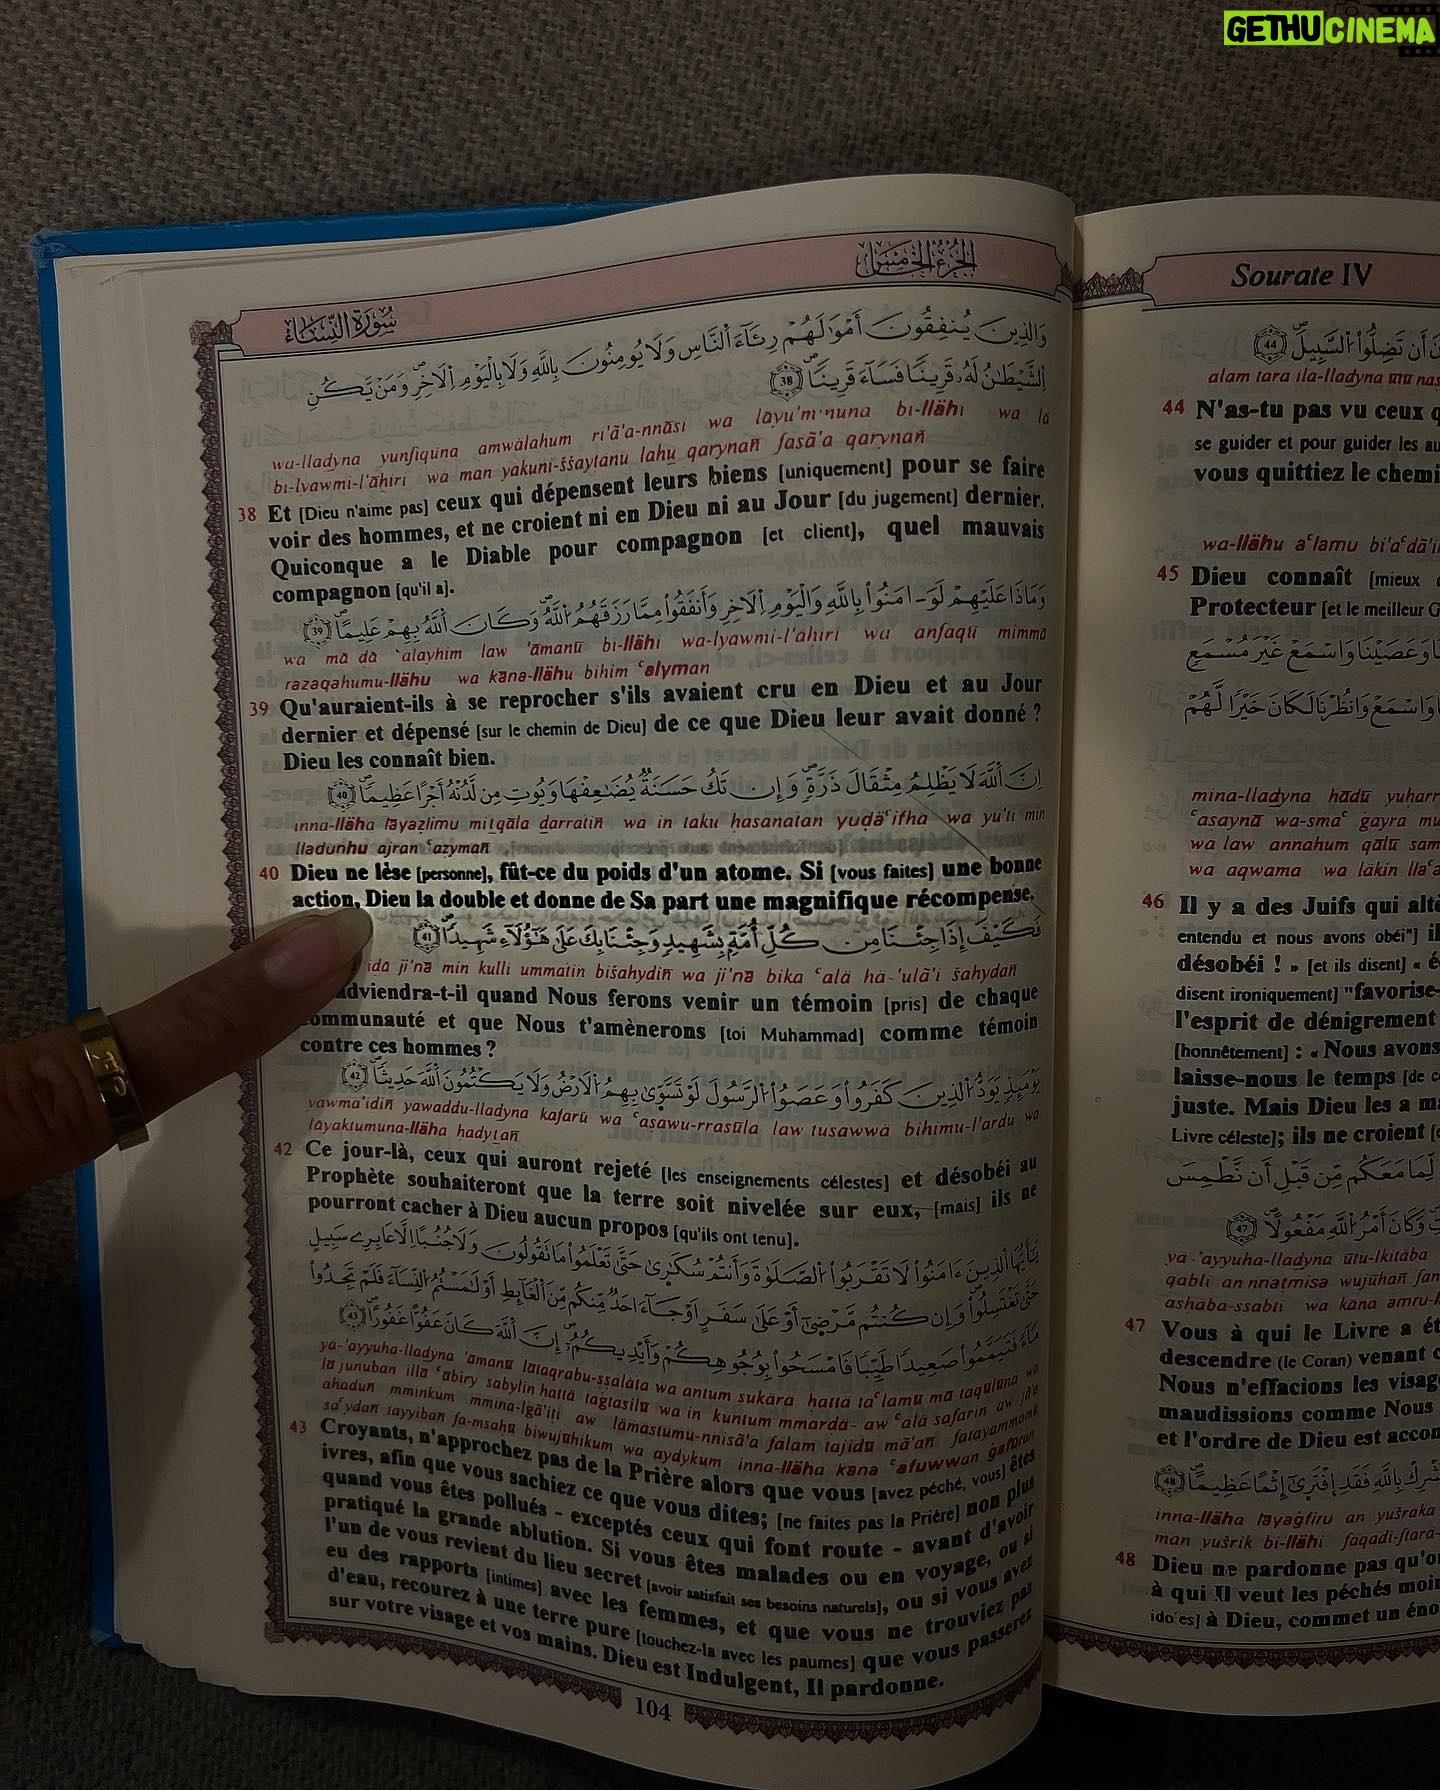 GETHUCINEMA
سُورَةُ النِّسَاء
الجزء الخامس
وَالذِينَ يُنفِقُونَ أَمْوَالَهُمْ رِئَآءَ اَلنَّاسِ وَلَا يُومِنُونَ بِاللَّهِ وَلَا بِالْيَوْمِ اِلَاخِرِ وَمَنْ يَّكُنِ
اِلشَّيْطَانُ لَهُ قَرِينًا فَسَآءَ قَرِينًا 38
wa-lladyna yunfiqūna amwālahum ri'ā'a-nnāsi wa lāyu'm'nuna bi-llāhi wa lā
bi-lyawmi-l'āḫiri wa man yakuni-ššaytānu lahu qarynañ fasā'a qarynañ
38 Et [Dieu n'aime pas] ceux qui dépensent leurs biens [uniquement] pour se faire
voir des hommes, et ne croient ni en Dieu ni au Jour [du jugement] dernier.
Quiconque a le Diable pour compagnon [et client], quel mauvais
compagnon [qu'il a].
وَمَاذَا عَلَيْهِمْ لَوَ - امَنُوا بِاللَّهِ وَالْيَوْمِ اِلَاخِرِ وَأَنفَقُوا مِمَّا رَزَقَهُمُ اُللَّهُ وَكَانَ اَللَّهُ بِهِمْ عَلِيمًا 39
wa mā dā `alayhim law 'āmanū bi-llāhi wa-lyawmi-l'āhiri wa anfaqū mimmā
razaqahumu-llāhu wa kāna-llāhu bihim ʿalyman
39 Qu'auraient-ils à se reprocher s'ils avaient cru en Dieu et au Jour
dernier et dépensé [sur le chemin de Dieu] de ce que Dieu leur avait donné ?
Dieu les connaît bien.
اِنَّ اَللَّهَ لَا يَظْلِمُ مِثْقَالَ ذَرَّةٍ وَإِن تَكُ حَسَنَةٌ يُضَاعِفْهَا وَيُوتِ مِن لَّدُنْهُ أَجْرًا عَظِيمًا 40
inna-llāha lāyaẓlimu mitqāla darratiñ wa in taku ḥasanatan yuḍāʿifha wa yu'ti min
lladunhu ajran ʿazymañ
40 Dieu ne lèse [personne], fût-ce du poids d'un atome. Si [vous faites] une bonne
action, Dieu la double et donne de Sa part une magnifique récompense.
فَكَيْفَ إِذَا جِئْنَا مِن كُلِّ أُمَّةٍ بِشَهِيدٍ وَجِئْنَا بِكَ عَلَىٰ هَؤُلَاءِ شَهِيدًا 41
idā ji'nā min kulli ummatin bišahydiñ wa ji'nā bika ʿalā hā-'ulā'i šahydañ
adviendra-t-il quand Nous ferons venir un témoin [pris] de chaque
communauté et que Nous t'amènerons [toi Muhammad] comme témoin
contre ces hommes ?
يَوْمَئِذٍ يَوَدُّ الذِينَ كَفَرُوا وَعَصَوُا الرَّسُولَ لَوْ تَسَّوَّىٰ بِهِمُ الَارْضُ وَلَا يَكْتُمُونَ اَللَّهَ حَدِيثًا 42
yawma'idiñ yawaddu-lladyna kafarū wa ʿaṣawu-rrasūla law tusawwā bihimu-l'ardu wa
lāyaktumuna-llāha hadytañ
42 Ce jour-là, ceux qui auront rejeté [les enseignements célestes] et désobéi au
Prophète souhaiteront que la terre soit nivelée sur eux, [mais] ils ne
pourront cacher à Dieu aucun propos [qu'ils ont tenu].
يَٰأَيُّهَا الذِينَ ءَامَنُوا لَا تَقْرَبُوا الصَّلَوٰةَ وَأَنتُمْ سُكَارَىٰ حَتَّىٰ تَعْلَمُوا مَا تَقُولُونَ وَلَا جُنُبًا اِلَّا عَابِرِے سَبِيلٍ
حَتَّىٰ تَغْتَسِلُوا وَإِن كُنتُم مَّرْضَىٰ أَوْ عَلَىٰ سَفَرٍ اَوْ جَآءَ احَدٌ مِّنكُم مِّنَ اَلْغَآئِطِ أَوْ لَامَسْتُمُ النِّسَآءَ فَلَمْ تَجِدُوا
مَآءً فَتَيَمَّمُوا صَعِيدًا طَيِّبًا فَامْسَحُوا بِوُجُوهِكُمْ وَأَيْدِيكُمُ إِنَّ اَللَّهَ كَانَ عَفُوًّا غَفُورًا 43
yā-'ayyuha-lladyna 'āmanū lātaqrabu-ṣṣalāta wa antum sukārā hattā taʿlamū mā taqulūna wa
lā junuban illā ʿābiry sabylin hattā taġtasilū wa in kuntum mmardā- aw ʿalā safarin aw jā'a
ahadun mminkum mmina-lġā'iṭi aw lāmastumu-nnisā'a falam tajidū mā'añ fatayammamū
saʿydañ tayyiban fa-msaḥū biwujūhikum wa aydykum inna-llāha kāna ʿafuwwan ġafūrañ
43 Croyants, n'approchez pas de la Prière alors que vous [avez péché, vous] êtes
ivres, afin que vous sachiez ce que vous dites; [ne faites pas la Prière] non plus
quand vous êtes pollués - exceptés ceux qui font route - avant d'avoir
pratiqué la grande ablution. Si vous êtes malades ou en voyage, ou si
l'un de vous revient du lieu secret [avoir satisfait ses besoins naturels], ou si vous avez
eu des rapports [intimes] avec les femmes, et que vous ne trouviez pas
d'eau, recourez à une terre pure [touchez-la avec les paumes] que vous passerez
sur votre visage et vos mains. Dieu est Indulgent, Il pardonne.
104
Sourate IV
أَن تَضِلُّوا السَّبِيلَ 44
alam tara ila-lladyna
44 N'as-tu pas vu ceux
se guider et pour guider les
vous quittiez le chemi
wa-llāhu aʿlamu biʾaʿdā'i
45 Dieu connaît [mieux
Protecteur [et le meilleur
وَعَصَيْنَا وَاسْمَعْ غَيْرَ مُسْمَعٍ
وَاسْمَعْ وَانظُرْنَا لَكَانَ خَيْرًا لَّهُمْ
mina-lladyna hādū yuharr
ʿasaynā wa-smaʿ ġayra mu
wa law annahum qālū sam
wa aqwama wa lākin
46 Il y a des Juifs qui alt
entendu et nous avons obéi"] il
désobéi ! » [et ils disent] « é
disent ironiquement] "favorise-
l'esprit de dénigrement
[honnêtement] : « Nous avons
laisse-nous le temps [de
juste. Mais Dieu les a ma
Livre céleste]; ils ne croient
لِّمَا مَعَكُم مِّن قَبْلِ أَن نَّطْمِسَ
وَكَانَ أَمْرُ اللَّهِ مَفْعُولًا 47
yā-'ayyuha-lladyna ūtu-lkitāba
qabli an nnaṭmisa wujūhañ fan
ashāba-ssabti wa kāna amru-l
47 Vous à qui le Livre a ét
descendre (le Coran) venant
Nous n'effacions les visag
maudissions comme Nous
et l'ordre de Dieu est accom
يُشْرِكْ بِاللَّهِ فَقَدِ اِفْتَرَىٰ إِثْمًا عَظِيمًا 48
inna-llāha lāyaġfiru an yušraka
man yušrik bi-llāhi faqadi-ftarā-
48 Dieu ne pardonne pas qu'o
à qui Il veut les péchés moin
à Dieu, commet un éno